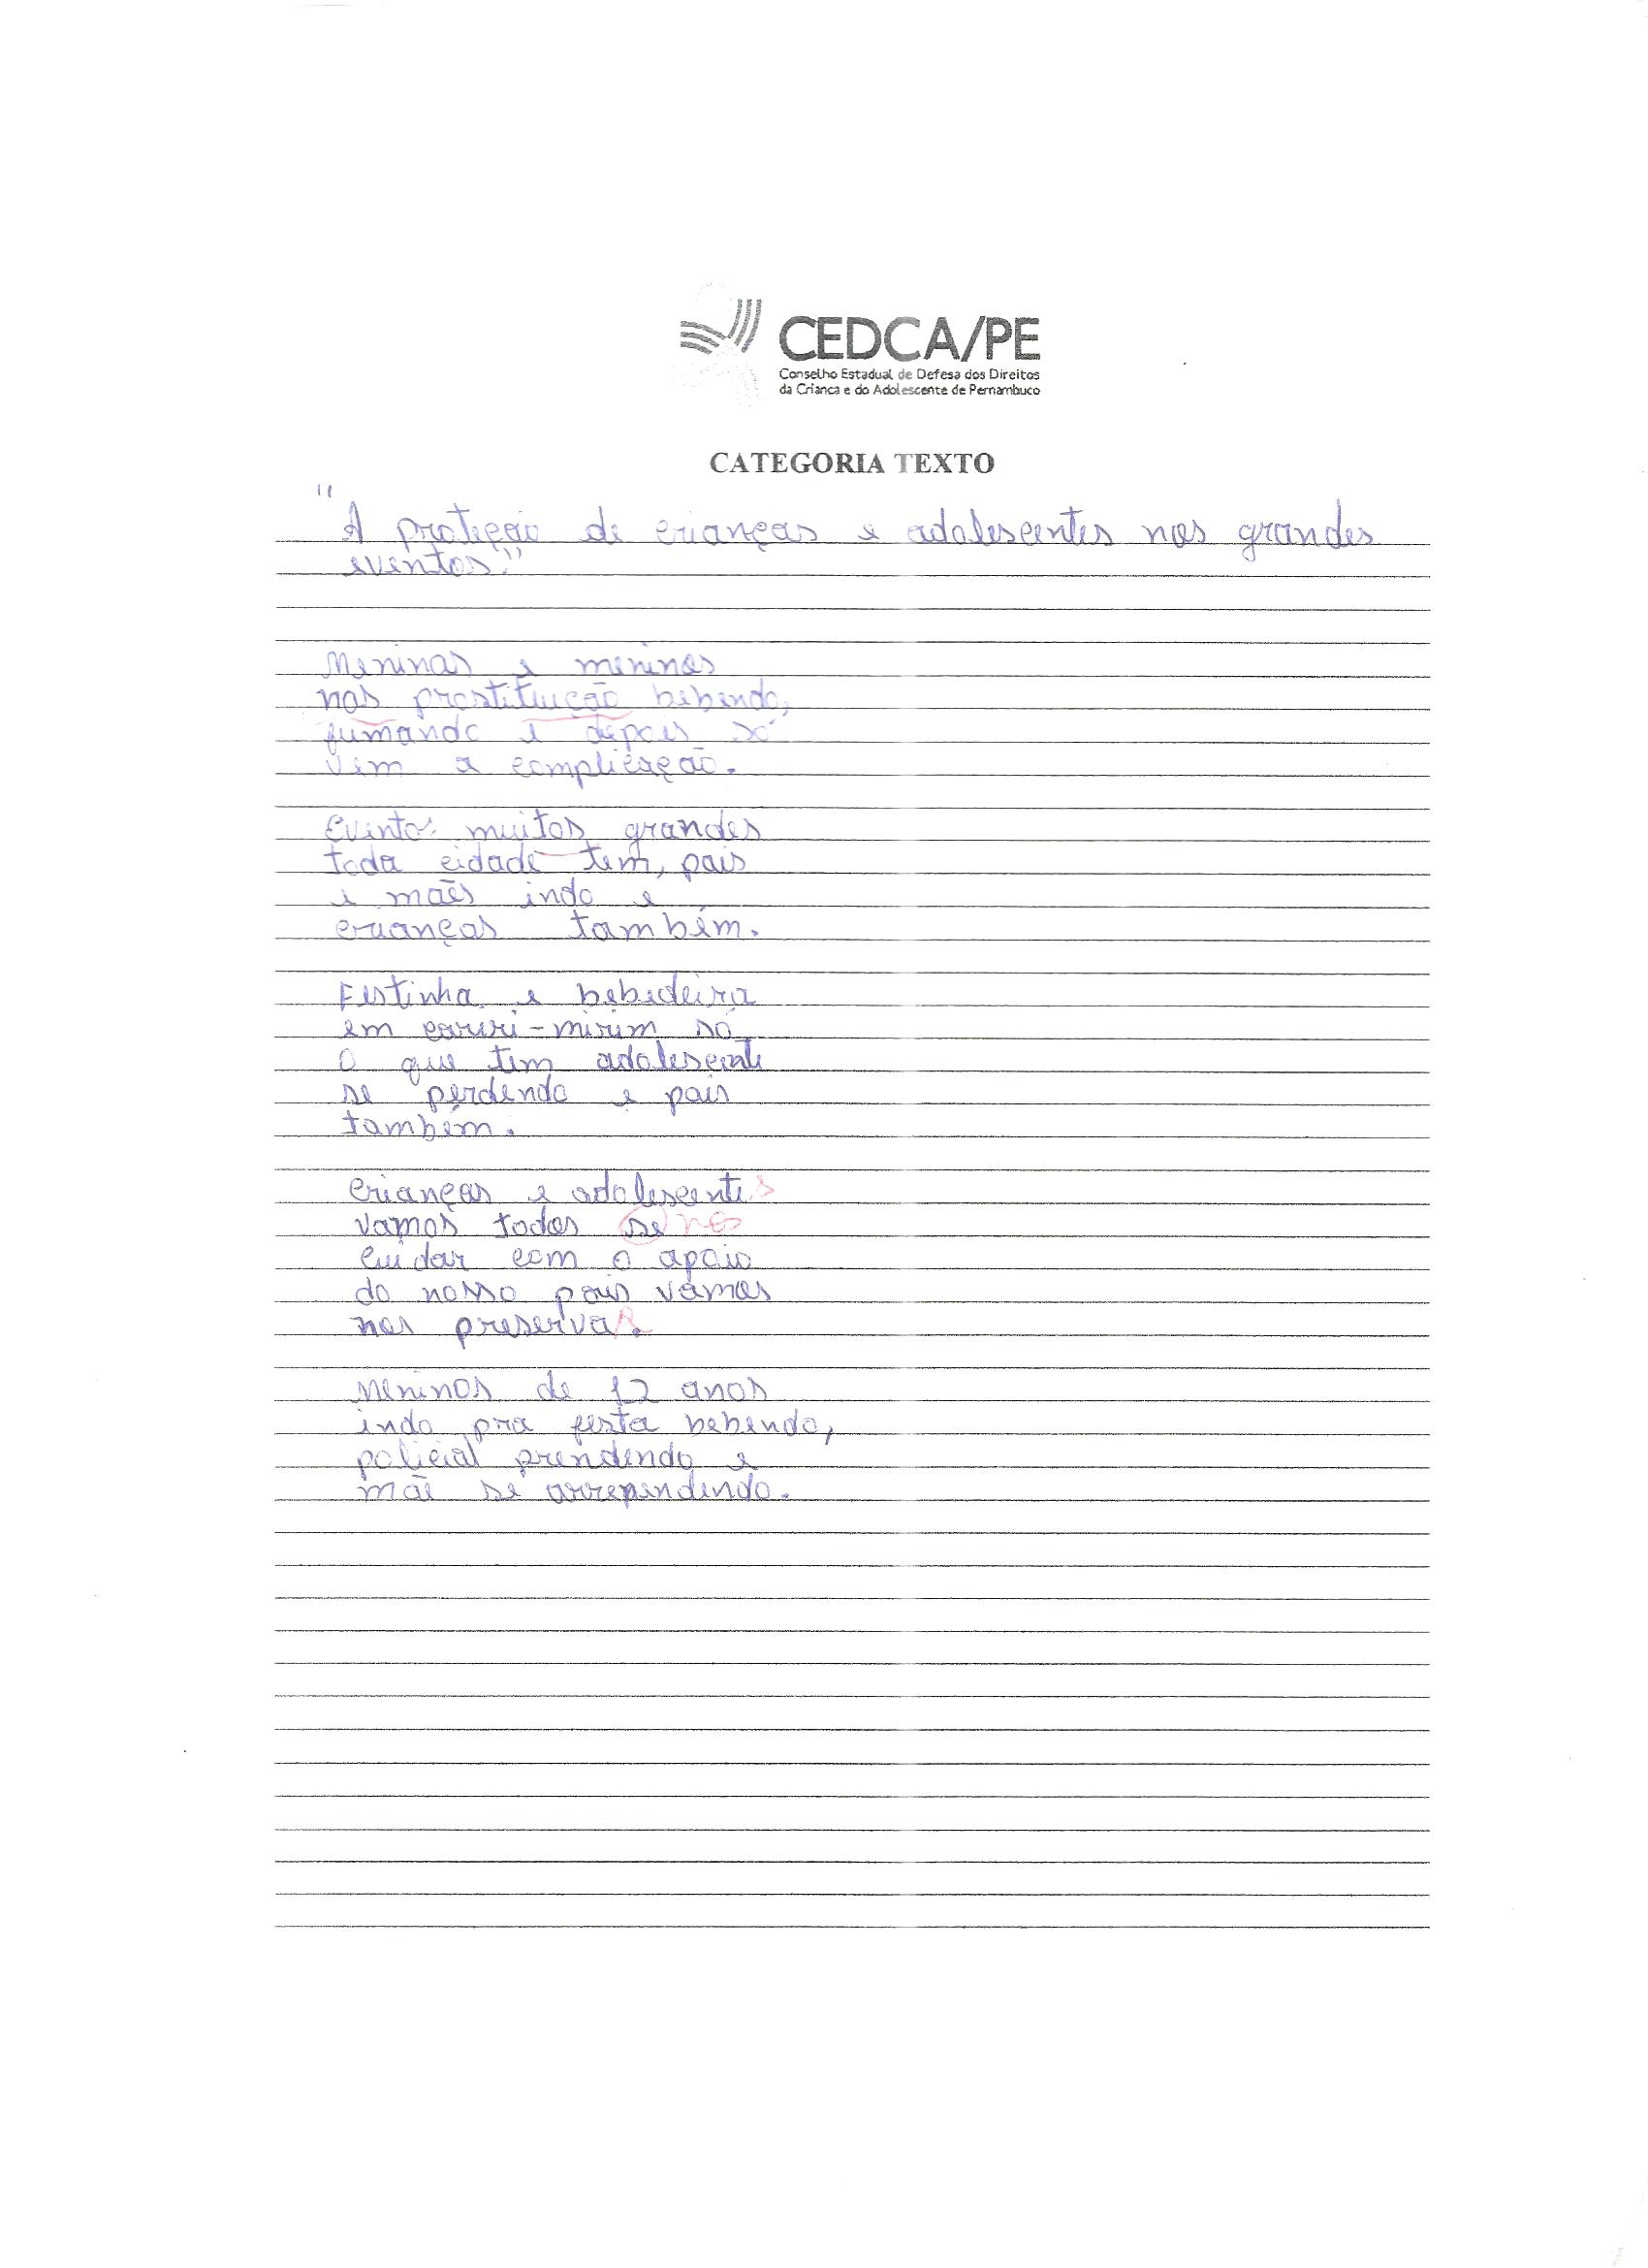 CEDCA/PE
Conselho Estadual de Defesa dos Direitos
da Criança e do Adolescente de Pernambuco
CATEGORIA TEXTO
"A proteção de crianças e adolescentes nos grandes
eventos."
Meninas e meninos
nas prostituição bebendo,
fumando e depois só
vem a complicação.
Eventos muitos grandes
toda cidade tem, pais
e mães indo e
crianças também.
Festinha e bebedeira
em cariri-mirim só
o que tem adolescente
se perdendo e pais
também.
Crianças e adolescentes
vamos todos se nos
cuidar com o apoio
do nosso pais vamos
nos preservaR.
Meninos de 12 anos
indo pra festa bebendo,
policial prendendo e
mãe se arrependendo.